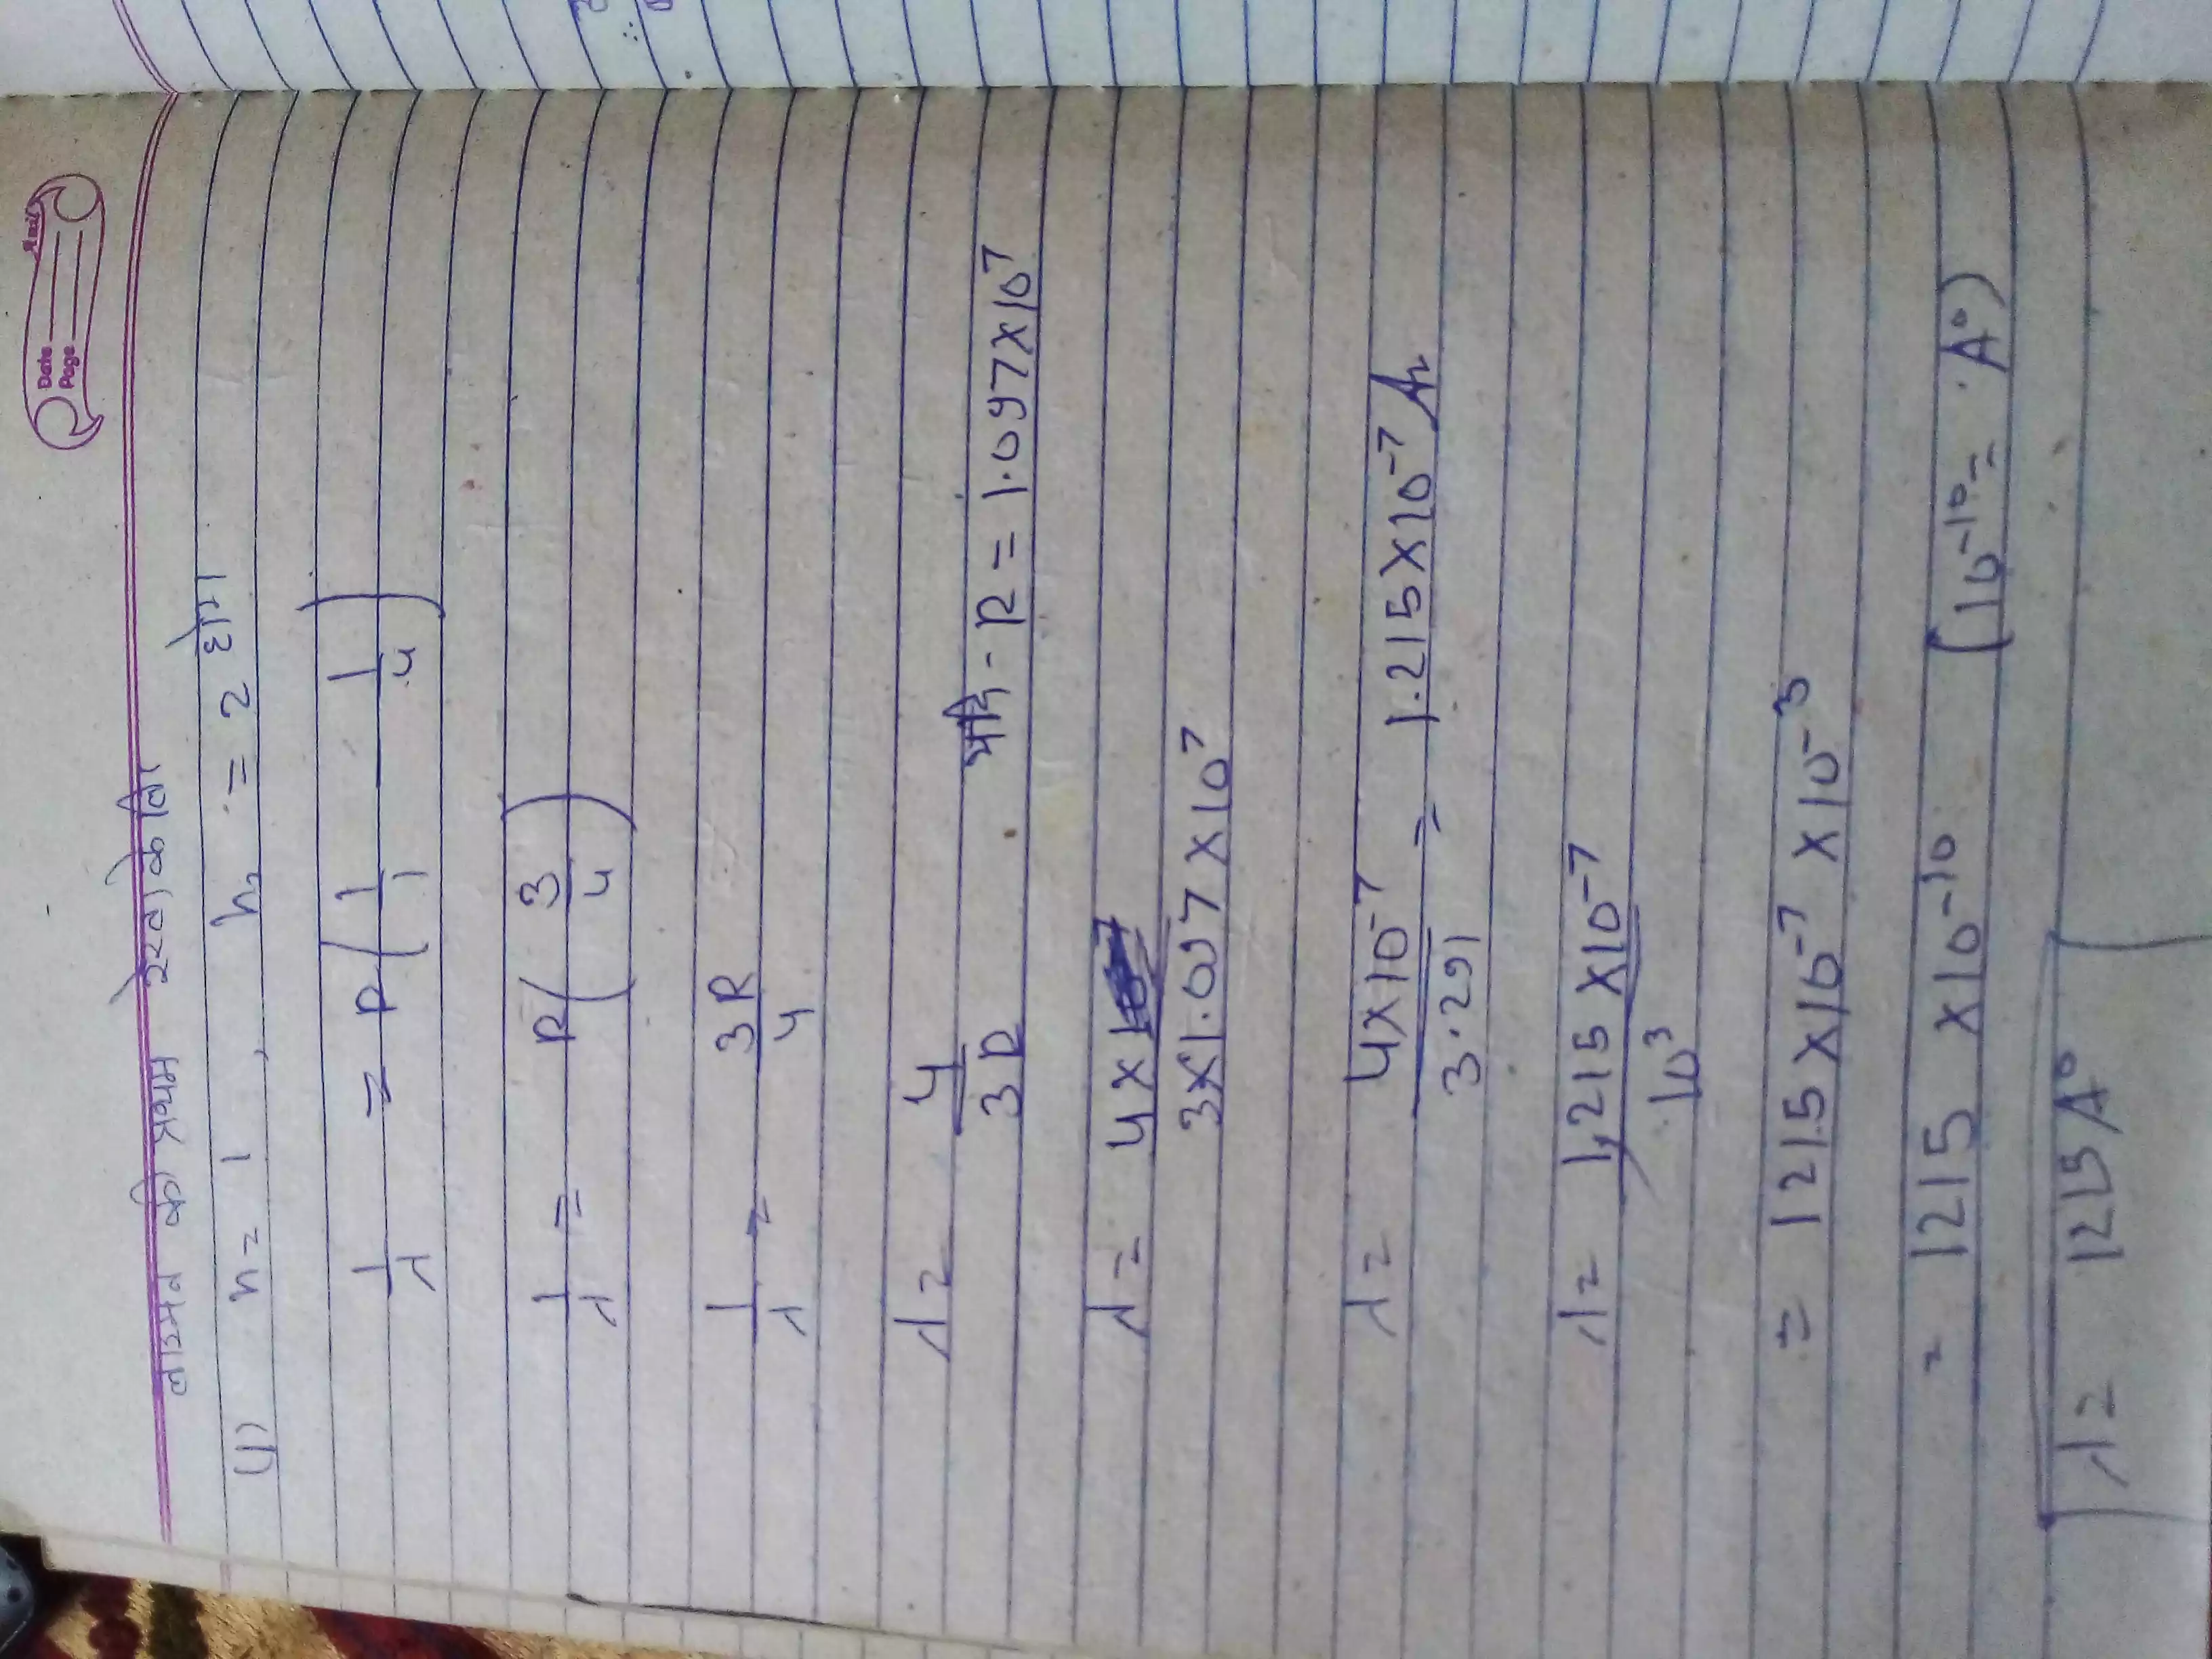 Date
Page
लाइमन की प्रथम रेखा के लिए
(1) n = 1 , n₂ = 2 होगा
1/λ = R ( 1/1 — 1/4 )
1/λ = R ( 3/4 )
1/λ = 3R/4
λ = 4/3R यदि - R = 1.097×10⁷
λ = 4×1/3×1.097×10⁷
λ = 4×10⁻⁷/3.291 = 1.215×10⁻⁷ m
λ = 1,215×10⁻⁷/10³
= 1215×10⁻⁷×10⁻³
= 1215 ×10⁻¹⁰ (10⁻¹⁰ = A°)
λ = 1215 A°